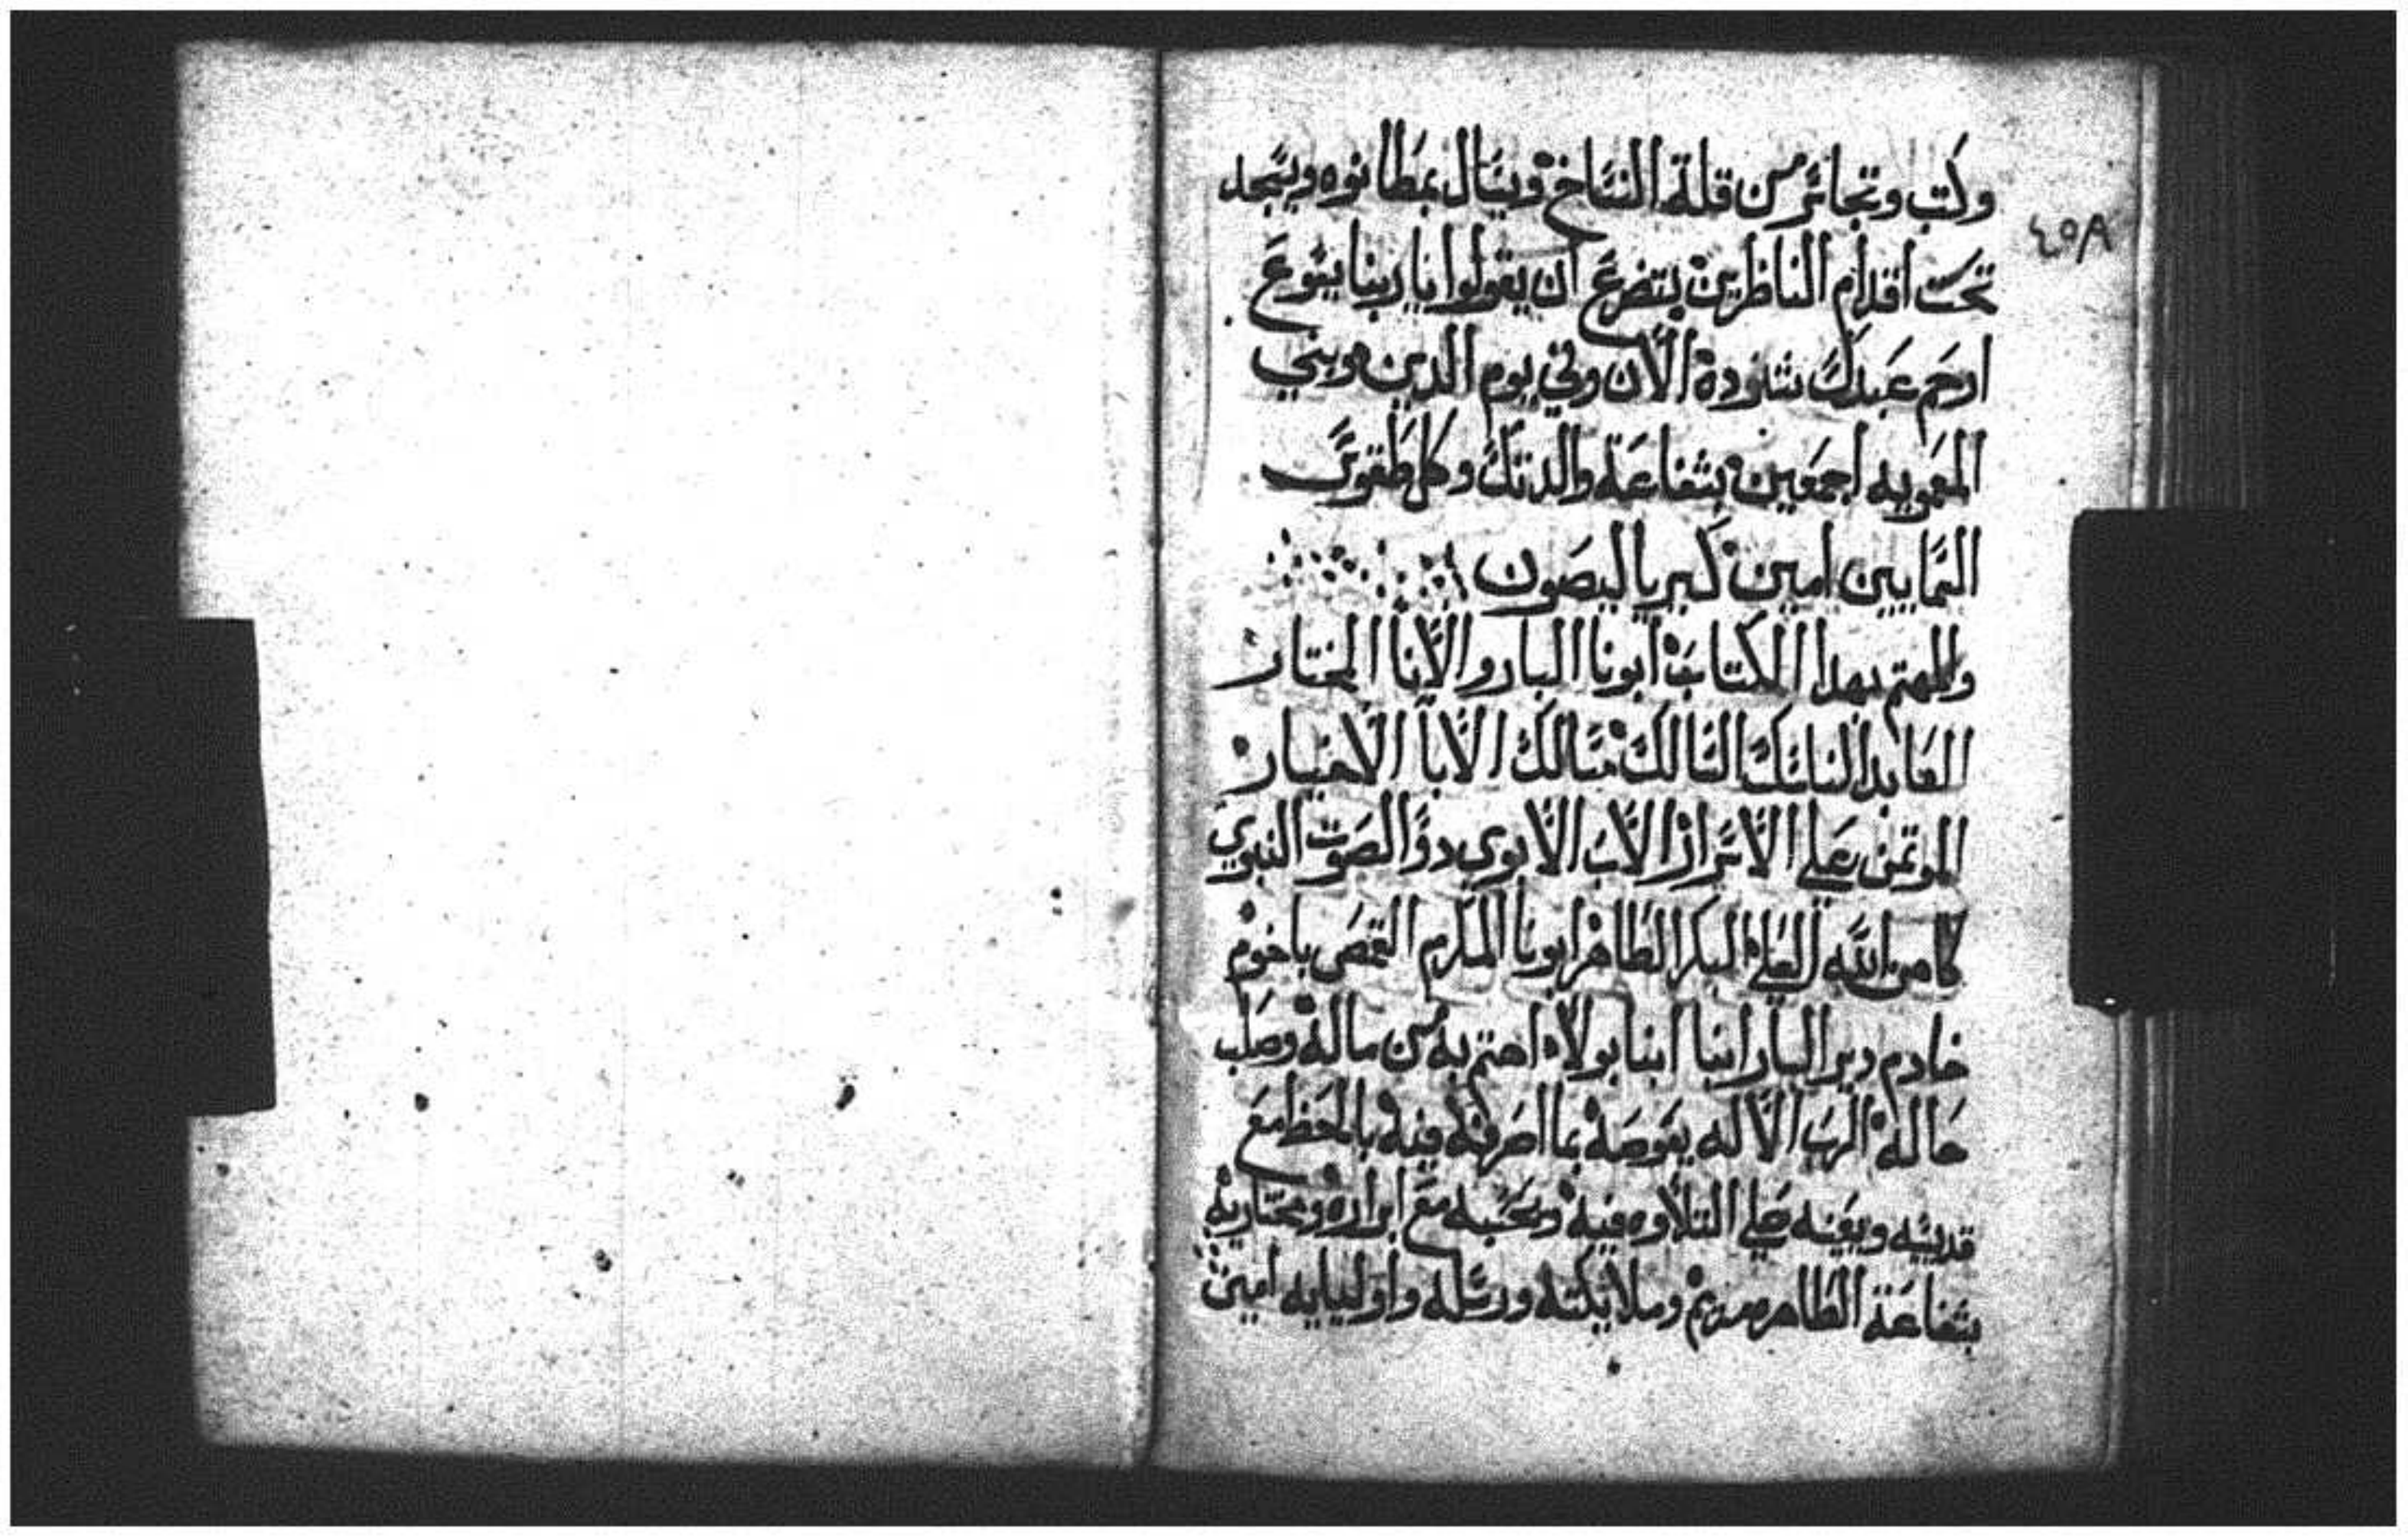 وكتب وتجاسر من قلة النساخ ويسال بمطانوه ويسجد
٤٥٨
تحت اقدام الناظرين يتضرع ان يقولوا يا ربنا يسوع
ارحم عبدك شنوده الان وفي يوم الدين وبني
المعموديه اجمعين بشفاعة والدتك وكل طقوس
السمايين امين كيرياليصون
والمهتم بهدا الكتاب ابونا البار والانا المختار
العابد الناسك السالك مسالك الابا الاخيار
الموتمن على الاسرار الاب الابوي دو الصوت النبوي
كاهن الله العلي البكر الطاهر ابونا المكرم القمص باخوم
خادم دير البار انبا ابنا بولا اهتم به من ماله وصلب
حاله الرب الاله يعوضه بما اصرفه فيه بالحظ مع
قديسه ويعينه على التلاوه فيه ويحسبه مع ابراره ومختاريه
بشفاعة الطاهره مريم وملايكته ورسله واوليايه امين